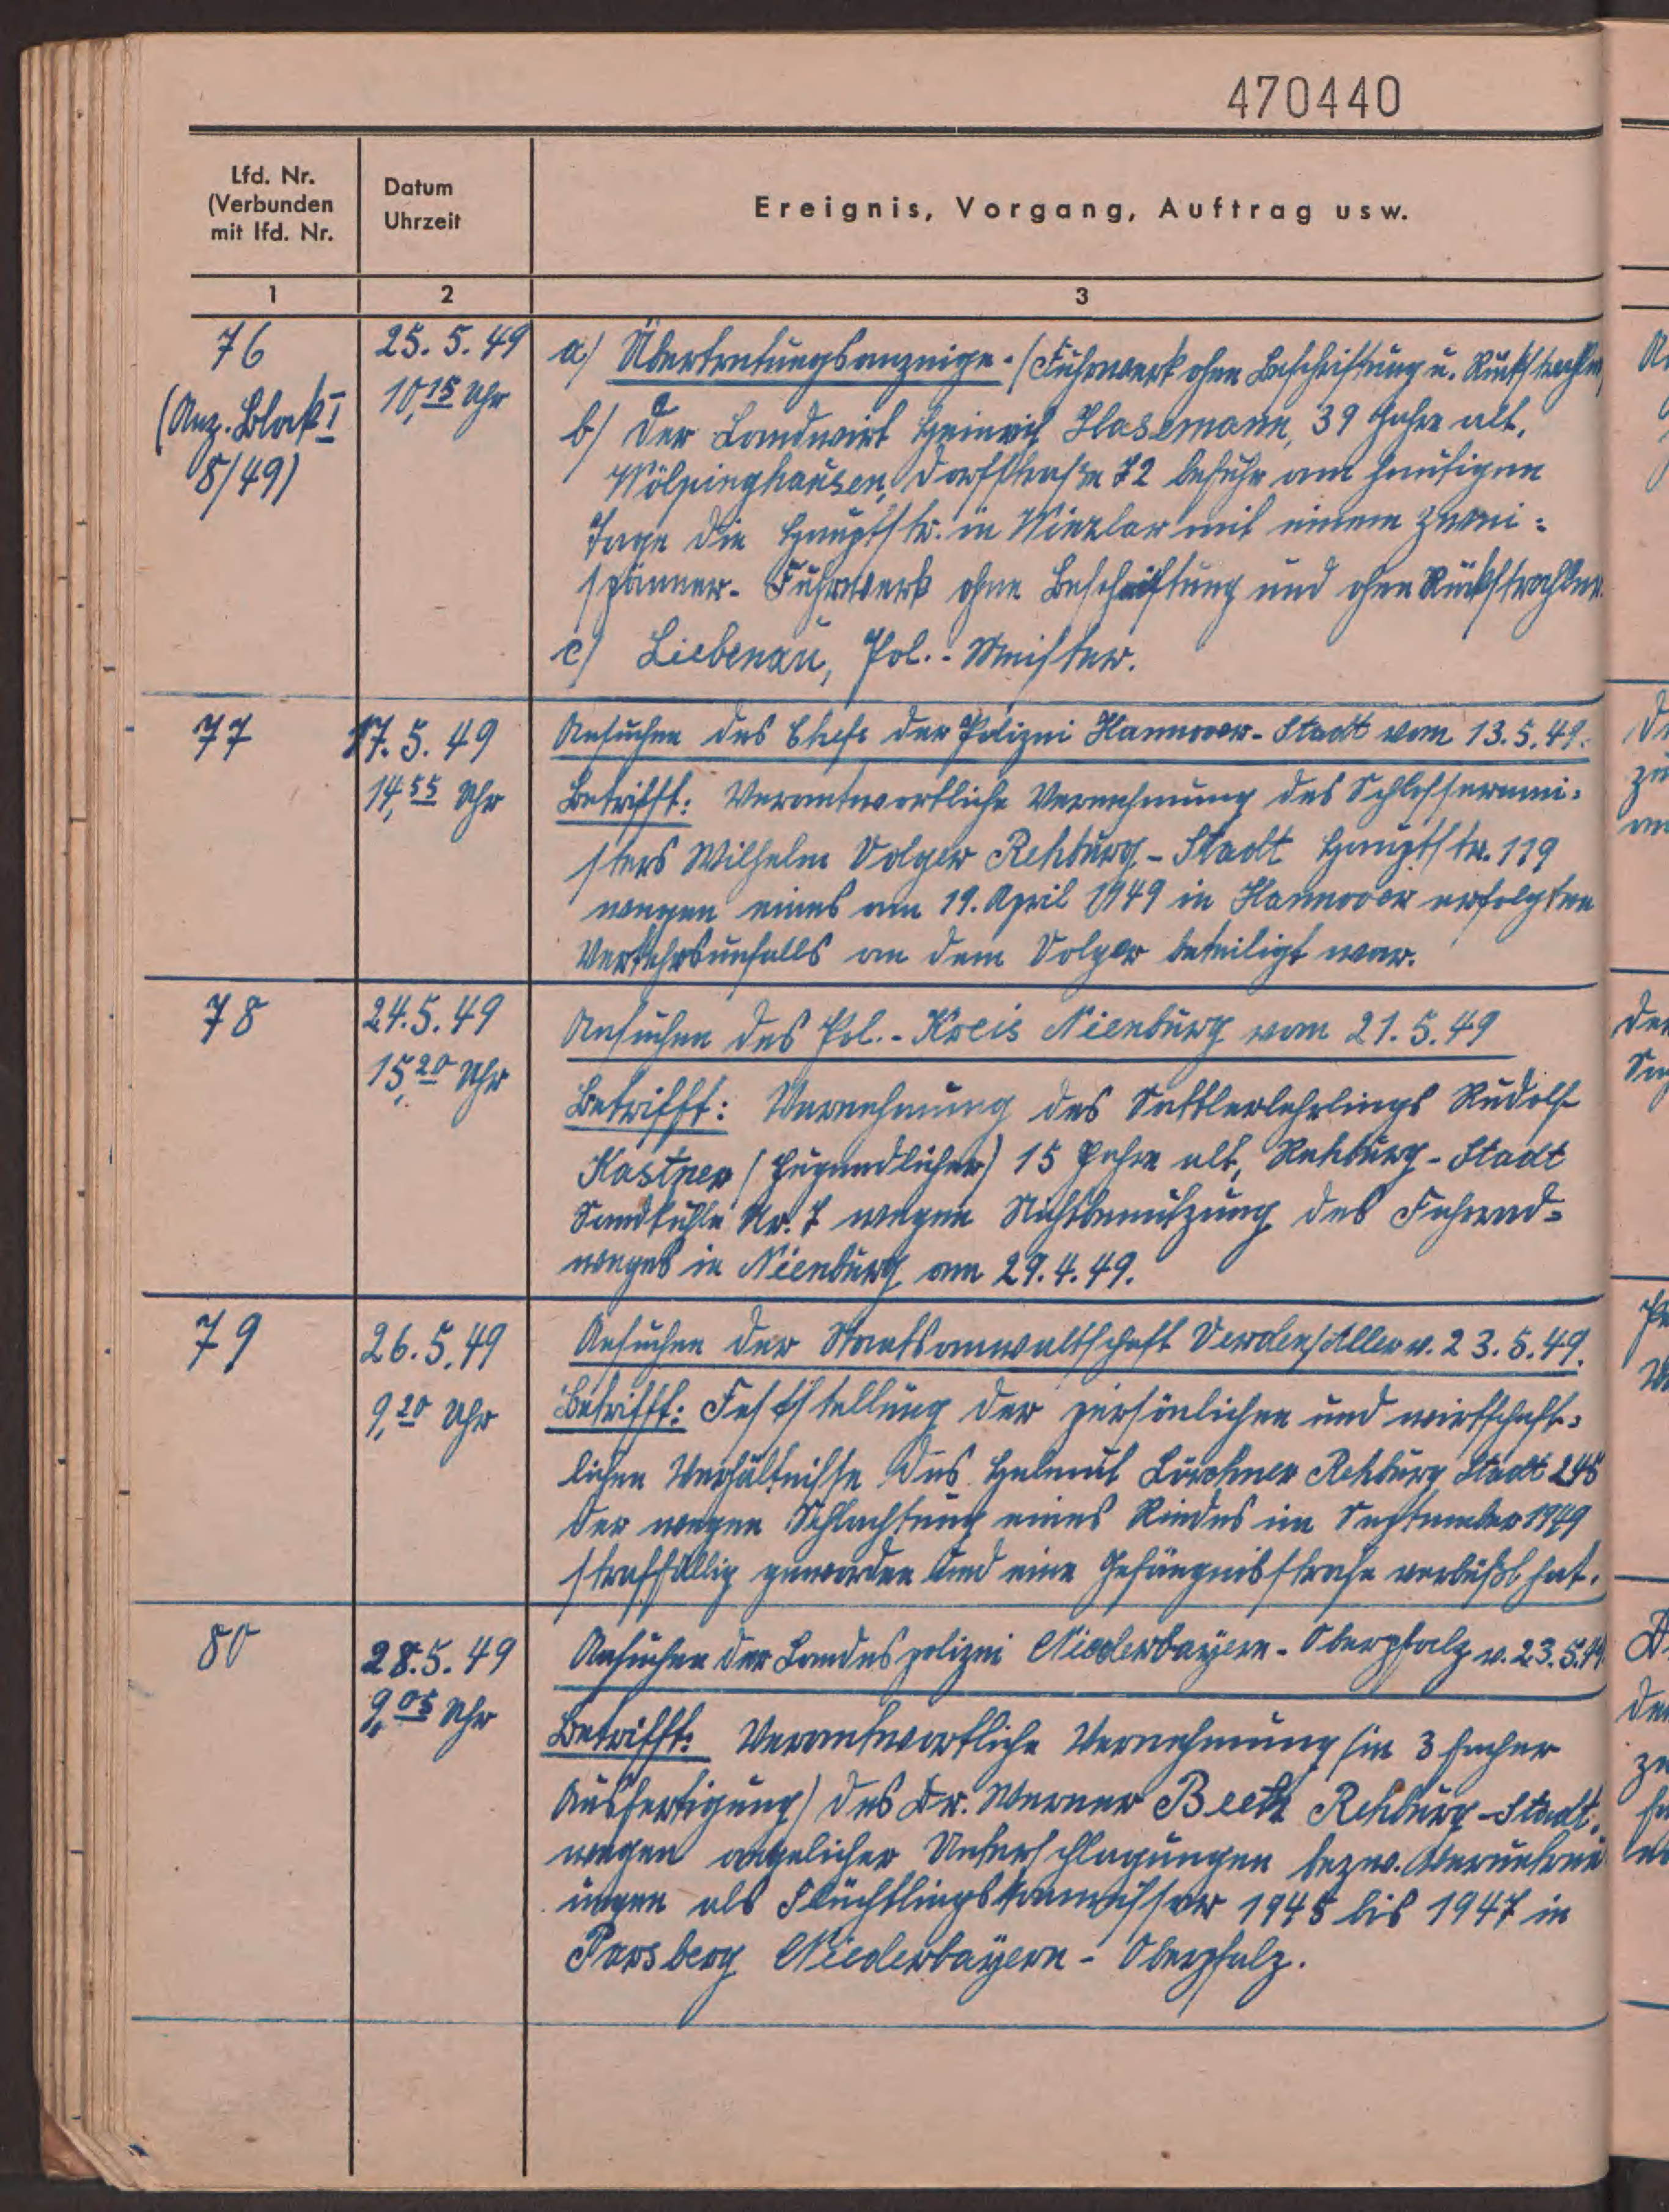 470440
Lfd. Nr.
(Verbunden
mit lfd. Nr.
Datum
Uhrzeit
Ereignis, Vorgang, Auftrag usw.
1
2
3
76
(Anz. Block I
8/49)
25. 5. 49
10,15 Uhr
a) Übertretungsanzeige. (Fuhrwerk ohne Beschriftung u. Rückstrahler)
b) Der Landwirt Heinrich Hasemann, 39 Jahre alt,
Wölpinghausen, Dorfstraße 72 befuhr am heutigen
Tage die Hauptstr. in Winzlar mit einem Zwei=
spänner-Fuhrwerk ohne Beschriftung und ohne Rückstrahler.
c) Liebenau, Pol.-Meister.
77
17. 5. 49
14,55 Uhr
Ansuchen des Chefs der Polizei Hannover-Stadt vom 13.5.49.
Betrifft: Verantwortliche Vernehmung des Schlossermei-
sters Wilhelm Volger Rehburg-Stadt Hauptstr. 119
wegen eines am 19. April 1949 in Hannover erfolgten
Verkehrsunfalls an dem Volger beteiligt war.
78
24.5.49
15,20 Uhr
Ansuchen des Pol.-Kreis Nienburg vom 21.5.49
Betrifft: Vernehmung des Sattlerlehrlings Rudolf
Kastner (Jugendlicher) 15 Jahre alt, Rehburg-Stadt
Sandkuhle Nr. 7 wegen Nichtbenutzung des Fahrrad=
weges in Nienburg am 29.4.49.
79
26.5.49
9,20 Uhr
Ansuchen der Staatsanwaltschaft Verden/Aller v. 23.5.49.
Betrifft: Feststellung der persönlichen und wirtschaft=
lichen Verhältnisse des Helmut Rehburg Stadt 245
der wegen Schlachtung eines Rindes im September 1949
straffällig geworden und eine Gefängnisstrafe verbüßt hat.
80
28.5.49
9,05 Uhr
Ansuchen der Landespolizei Niederbayern-Oberpfalz v. 23.5.49.
Betrifft: Verantwortliche Vernehmung (in 3 facher
Ausfertigung) des Dr. Werner Rehburg-Stadt.
wegen angelicher Unterschlagungen bezw. Veruntreu
ungen als Flüchtlingskommissar 1945 bis 1947 in
Parsberg Niederbayern-Oberpfalz.